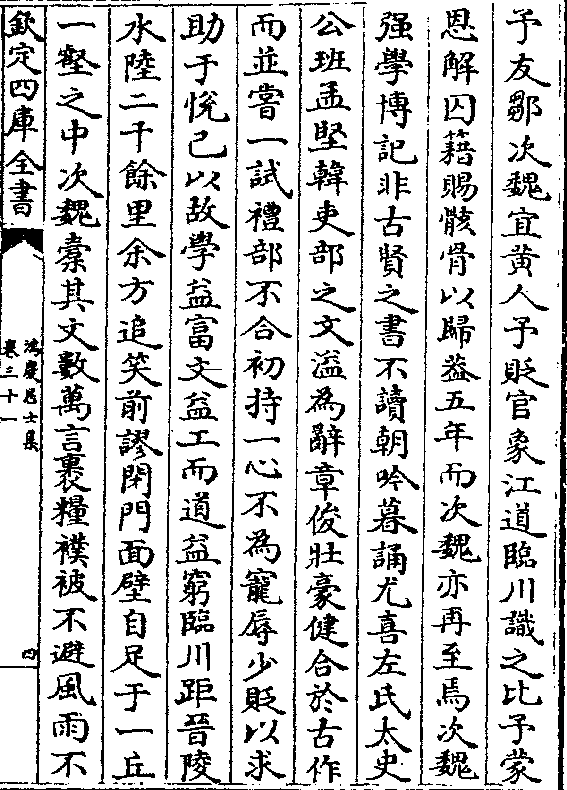 予友鄒次魏宜黄人予貶官象江道臨川識之比予蒙
恩解囚籍賜骸骨以歸葢五年而次魏亦再至焉次魏
强學博記非古賢之書不讀朝吟暮誦尤喜左氏太史
公班孟堅韓吏部之文溢為辭章俊壯豪健合於古作
而並嘗一試禮部不合初持一心不為寵辱少貶以求
助于悅己以故學益富文益工而道益窮臨川距晉陵
水陸二千餘里余方追笑前謬閉門面壁自足于一丘
一壑之中次魏橐其文數萬言裹糧襆被不避風雨不
欽定四庫全書
鴻慶居士集
卷三十一
四